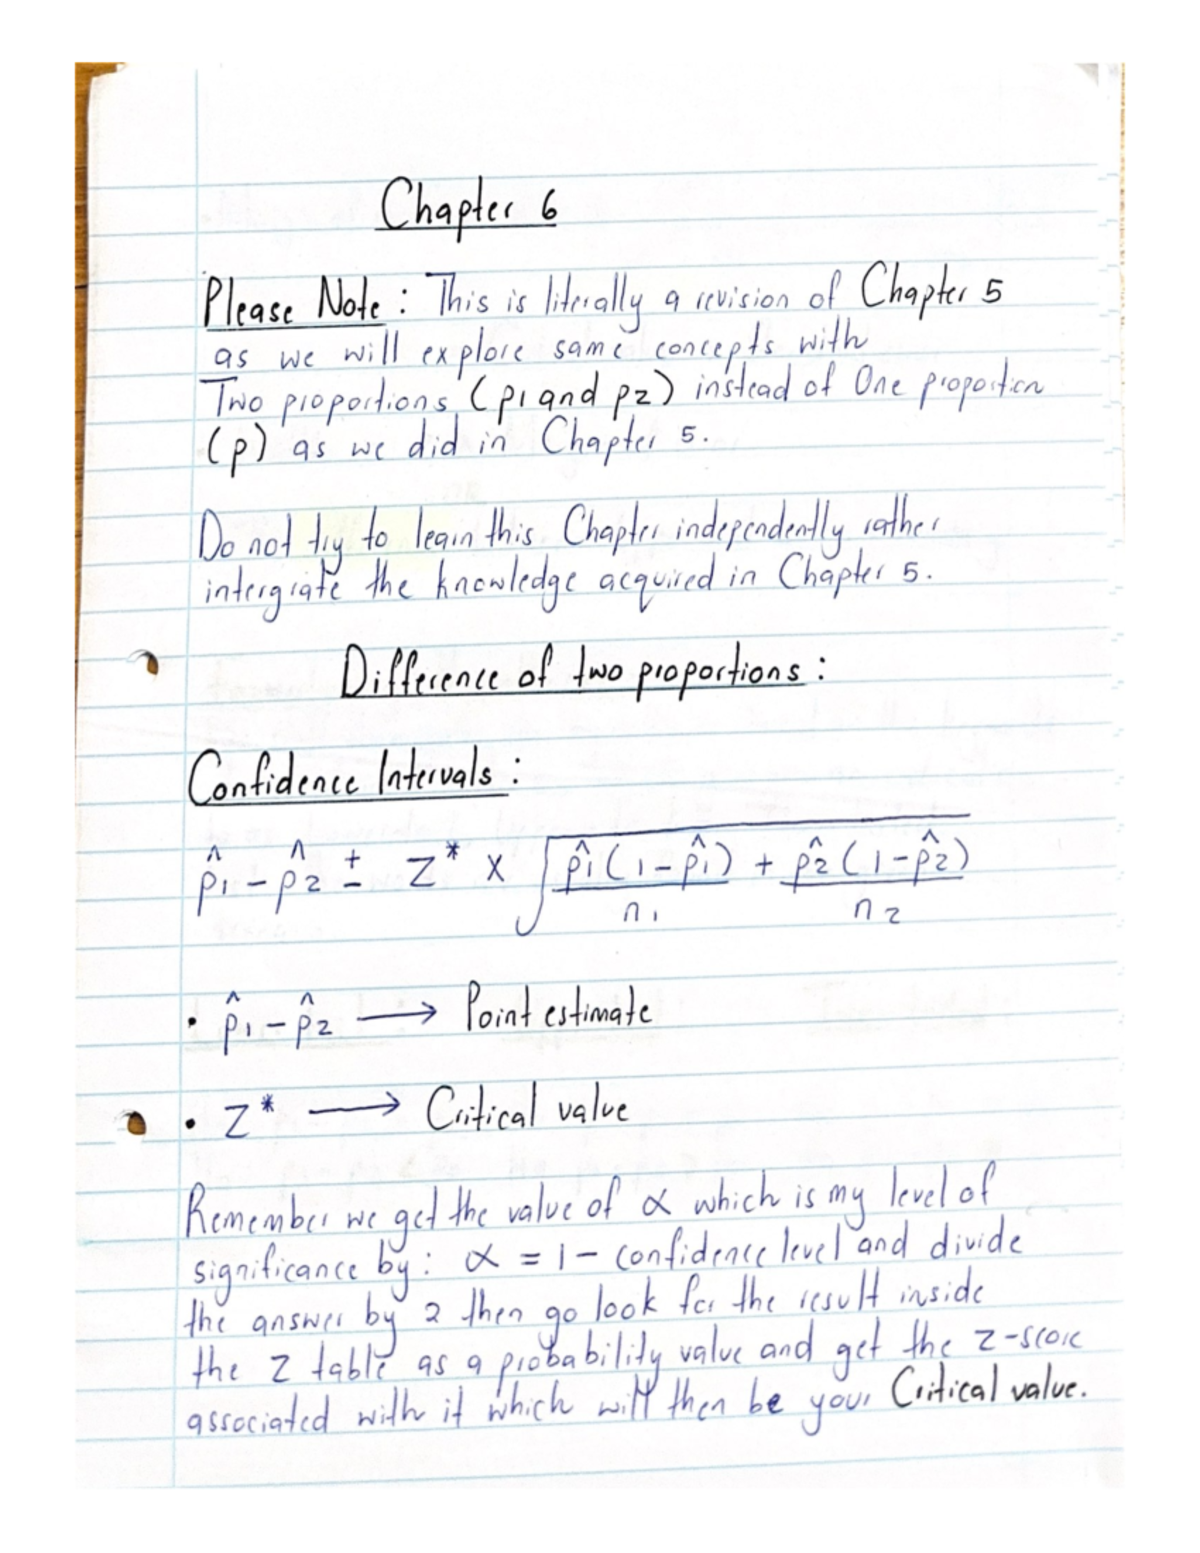 Chapter 6
Please Note: This is literally a revision of Chapter 5
as we will explore same concepts with
Two proportions (p1 and p2) instead of One proportion
(p) as we did in Chapter 5.
Do not try to learn this Chapter independently rather
intergrate the knowledge acquired in Chapter 5.
Difference of two proportions:
Confidence Intervals:
p̂1 - p̂2 ± Z* × √(p̂1(1-p̂1)/n1 + p̂2(1-p̂2)/n2)
• p̂1 - p̂2 → Point estimate
• Z* → Critical value
Remember we get the value of α which is my level of
significance by: α = 1 - confidence level and divide
the answer by 2 then go look for the result inside
the Z table as a probability value and get the z-score
associated with it which will then be your Critical value.